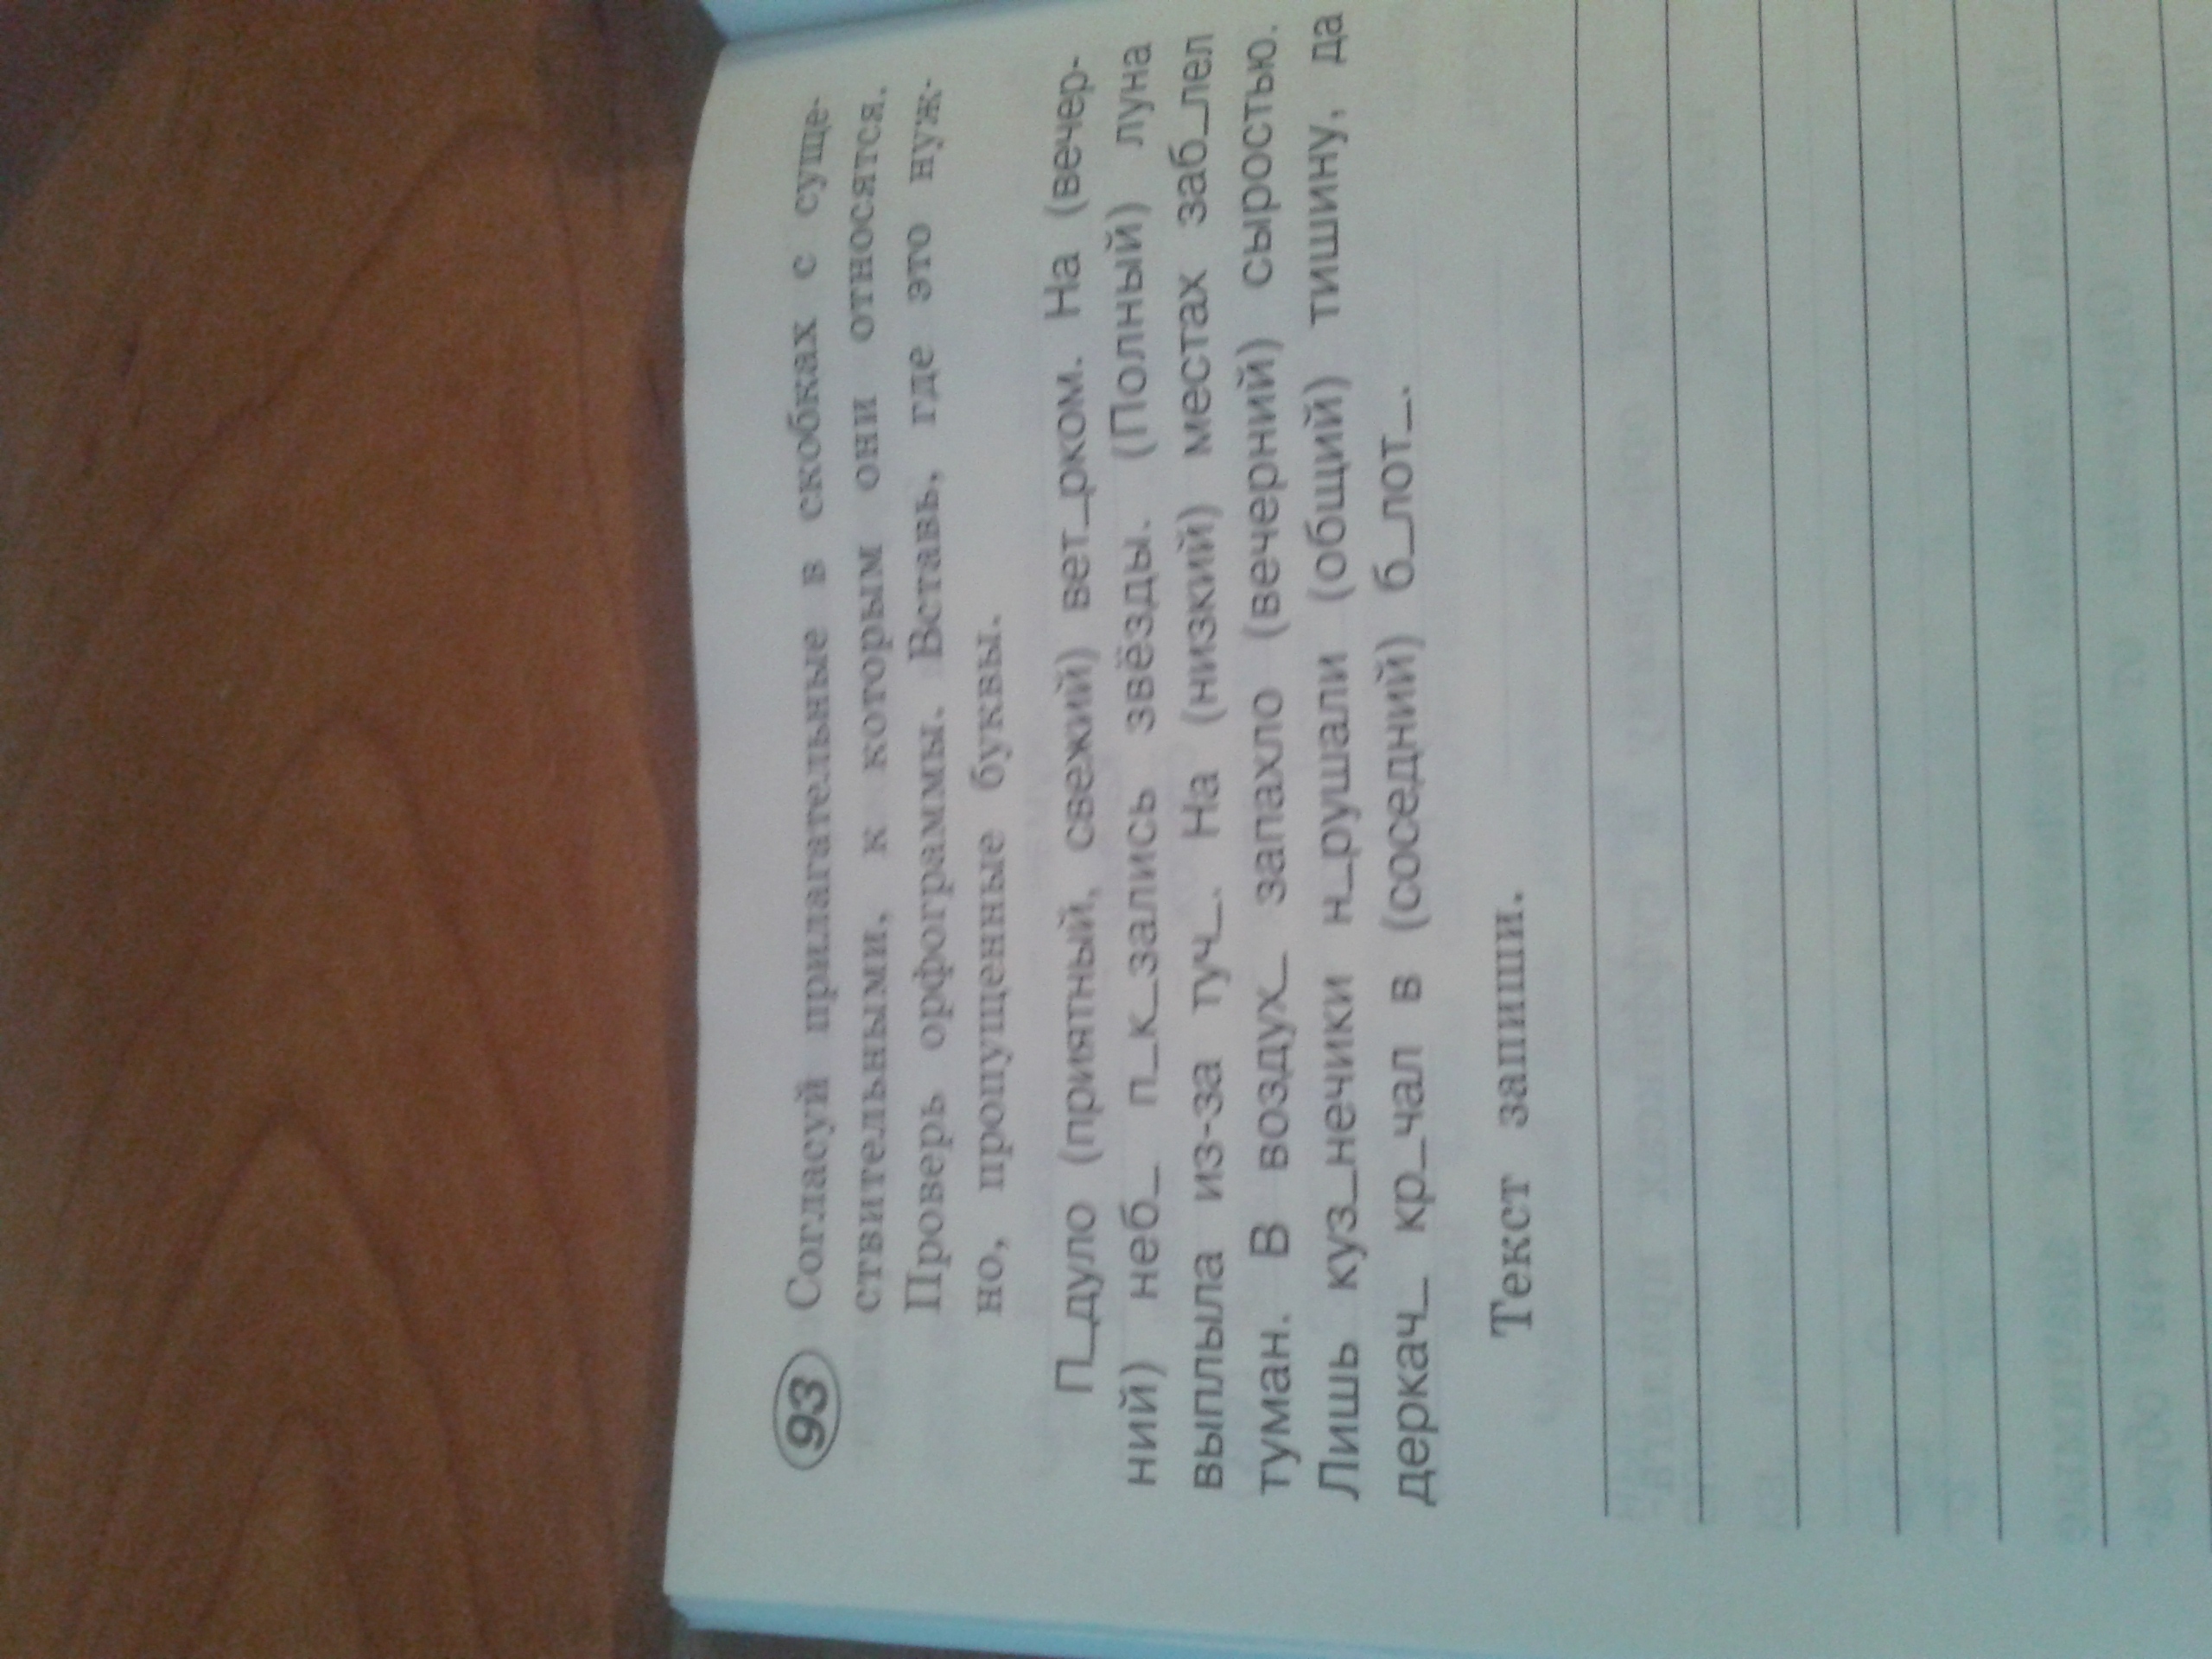 93 Согласуй прилагательные в скобках с суще-
ствительными, к которым они относятся.
Проверь орфограммы. Вставь, где это нуж-
но, пропущенные буквы.
П_дуло (приятный, свежий) вет_рком. На (вечер-
ний) неб_ п_к_зались звёзды. (Полный) луна
выплыла из-за туч_. На (низкий) местах заб_лел
туман. В воздух_ запахло (вечерний) сыростью.
Лишь куз_нечики н_рушали (общий) тишину, да
деркач_ кр_чал в (соседний) б_лот_.
Текст запиши.